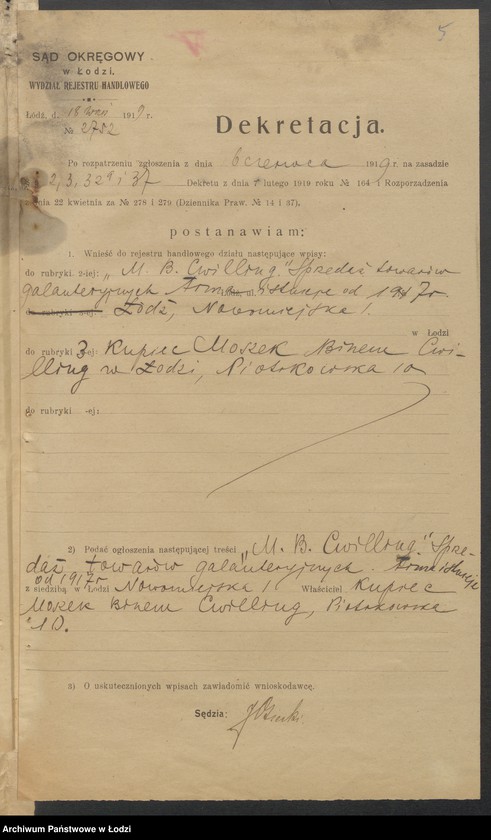 5
SĄD OKRĘGOWY
w Łodzi.
WYDZIAŁ REJESTRU HANDLOWEGO
Łódź, d. 18 wrześ 1919 r.
№ 2782
Dekretacja.
Po rozpatrzeniu zgłoszenia z dnia 6 czerwca 1919 r. na zasadzie
2, 3, 329 i 37 Dekretu z dnia 7 lutego 1919 roku № 164 i Rozporządzenia
dnia 22 kwietnia za № 278 i 279 (Dziennika Praw. № 14 i 37).
postanawiam:
1. Wnieść do rejestru handlowego działu następujące wpisy:
do rubryki 2-iej: „M. B. Cwilling" Sprzedaż towarów
galanteryjnych Firma istnieje od 1917 r.
do rubryki -ej: Łódź, Nowomiejska 1.
w Łodzi
do rubryki 3 ej: Kupiec Moszek Binem Cwi-
lling w Łodzi, Piotrkowska 10
do rubryki -ej:
2) Podać ogłoszenia następującej treści „M. B. Cwilling" Sprze-
daż towarów galanteryjnych. Firma istnieje
od 1917 r
z siedzibą w Łodzi Nowomiejska 1 Właściciel Kupiec
Moszek Binem Cwilling, Piotrkowska
10.
3) O uskutecznionych wpisach zawiadomić wnioskodawcę.
Sędzia:
Archiwum Państwowe w Łodzi